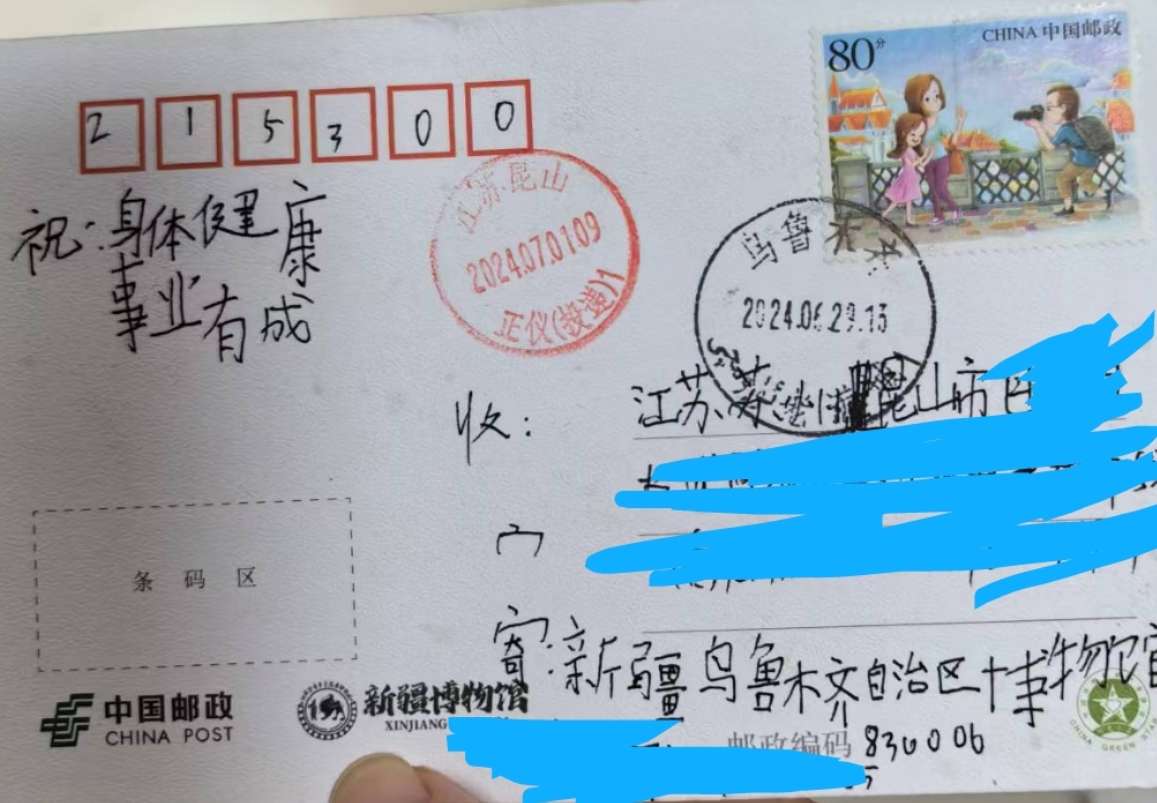 CHINA 中国邮政
80分
2 1 5 3 0 0
祝：身体健康
事业有成
江苏昆山
2024.07.01.09
正仪(投递)1
乌鲁木齐
2024.06.29.13
收：
江苏苏州
昆山市
条码区
寄：新疆乌鲁木齐自治区博物馆
中国邮政
CHINA POST
新疆博物馆
XINJIANG
邮政编码 830006
CHINA GREEN STAR